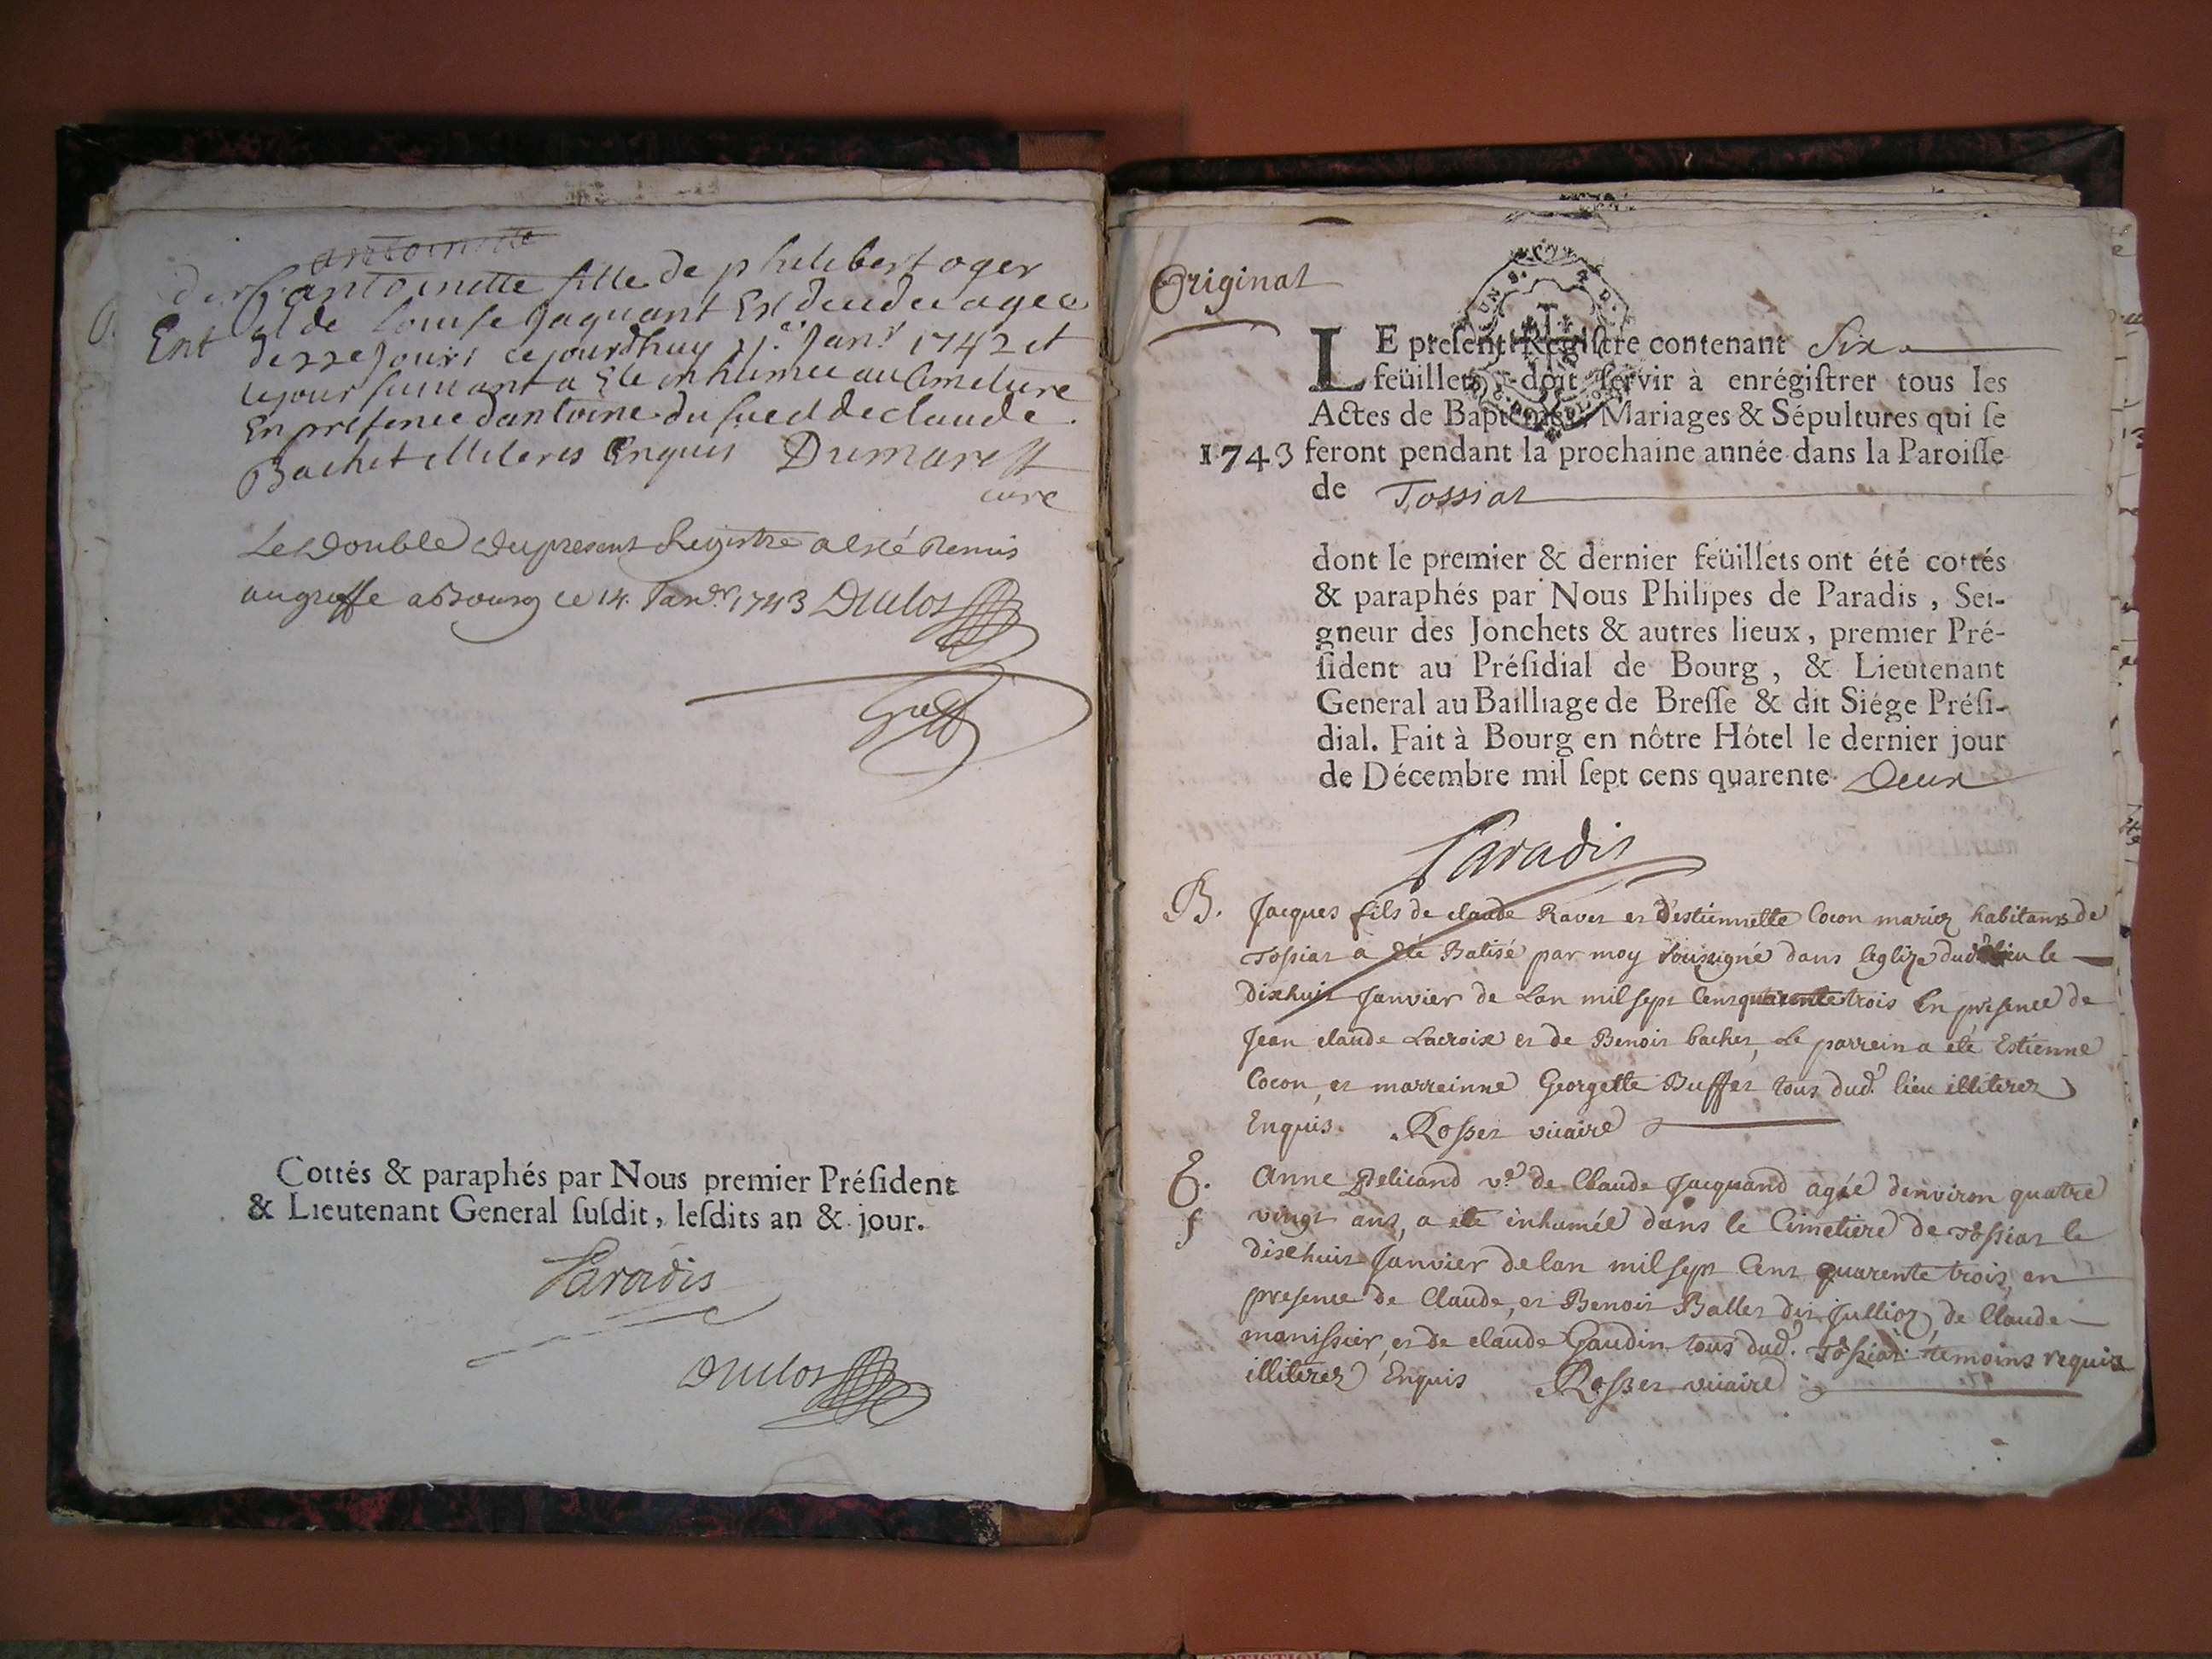 antoinette
antoinette fille de philibert oger
Ent et de Louise Jaquant Est decedee agee
de jours cejourdhuy Janr 1742 et
lejour suivant a Ete inhumee au Cimetiere
En presence dantoine du sued de claude
Bachet illiteres Enquis Dumarest
curé
Le Double du present Registre a esté Remis
au greffe a Bourg ce 14. Janer 1743 Duclos
Cottés & paraphés par Nous premier Préſident
& Lieutenant General ſuſdit, leſdits an & jour.
Paradis
Duclos
Original
LE preſent Regiſtre contenant Six
feüillets, doit ſervir à enrégiſtrer tous les
Actes de Baptêmes, Mariages & Sépultures qui ſe
1743 feront pendant la prochaine année dans la Paroiſſe
de Tossiat
dont le premier & dernier feüillets ont été cottés
& paraphés par Nous Philipes de Paradis, Sei-
gneur des Jonchets & autres lieux, premier Pré-
ſident au Préſidial de Bourg, & Lieutenant
General au Bailliage de Breſſe & dit Siége Préſi-
dial. Fait à Bourg en nôtre Hôtel le dernier jour
de Décembre mil ſept cens quarente Deux
Paradis
B. Jacques fils de claude Ravet et d'estiennette Cocon mariez habitans de
Tossiat a été Batisé par moy soussigné dans leglize dud lieu le
dixhuit Janvier de Lan mil sept Cent quarente trois En presence de
Jean claude Lacroix et de Benoit bachet, Le parrein a été Estienne
Cocon, et marreinne Georgette Buffet tous dud. lieu illiterez
Enquis. Rosset vicaire
E. Anne Pelicand ve. de Claude Jacquand agée denviron quatre
f vingt ans, a eté inhumée dans le Cimetiere de Tossiat le
dixehuit Janvier de lan mil sept Cent quarente trois, en
presence de Claude, et Benoit Ballet dit Jullioz, de Claude
manissier, et de claude Gaudin tous dud. Tossiat temoins requis
illiterez Enquis Rosset vicaire